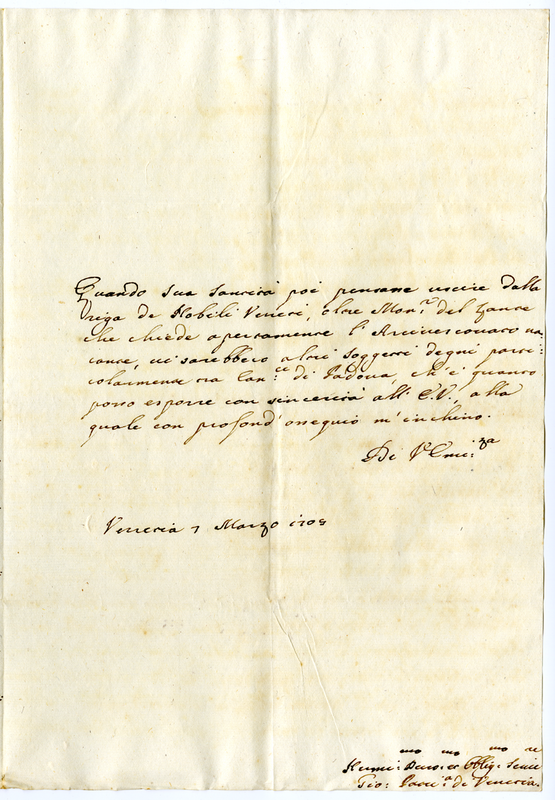 Quando sua Santità poi pensasse uscire dalla
riga de Nobili Veneti, oltre Mon.r del Zante
che chiede apertamente l'Arcivescovato va-
cante, vi sarebbero altri soggetti degni parti-
colarmente tra Can.ci di Padova, ch'è quanto
posso esporre con sincerità all' E.V., alla
quale con profond' ossequio m'inchino.
Di V.Emi:za
Venetia 7 Marzo 1705
Humi:mo Devo:mo et Oblig:mo Serv:re
Gio: Patri:a di Venetia.